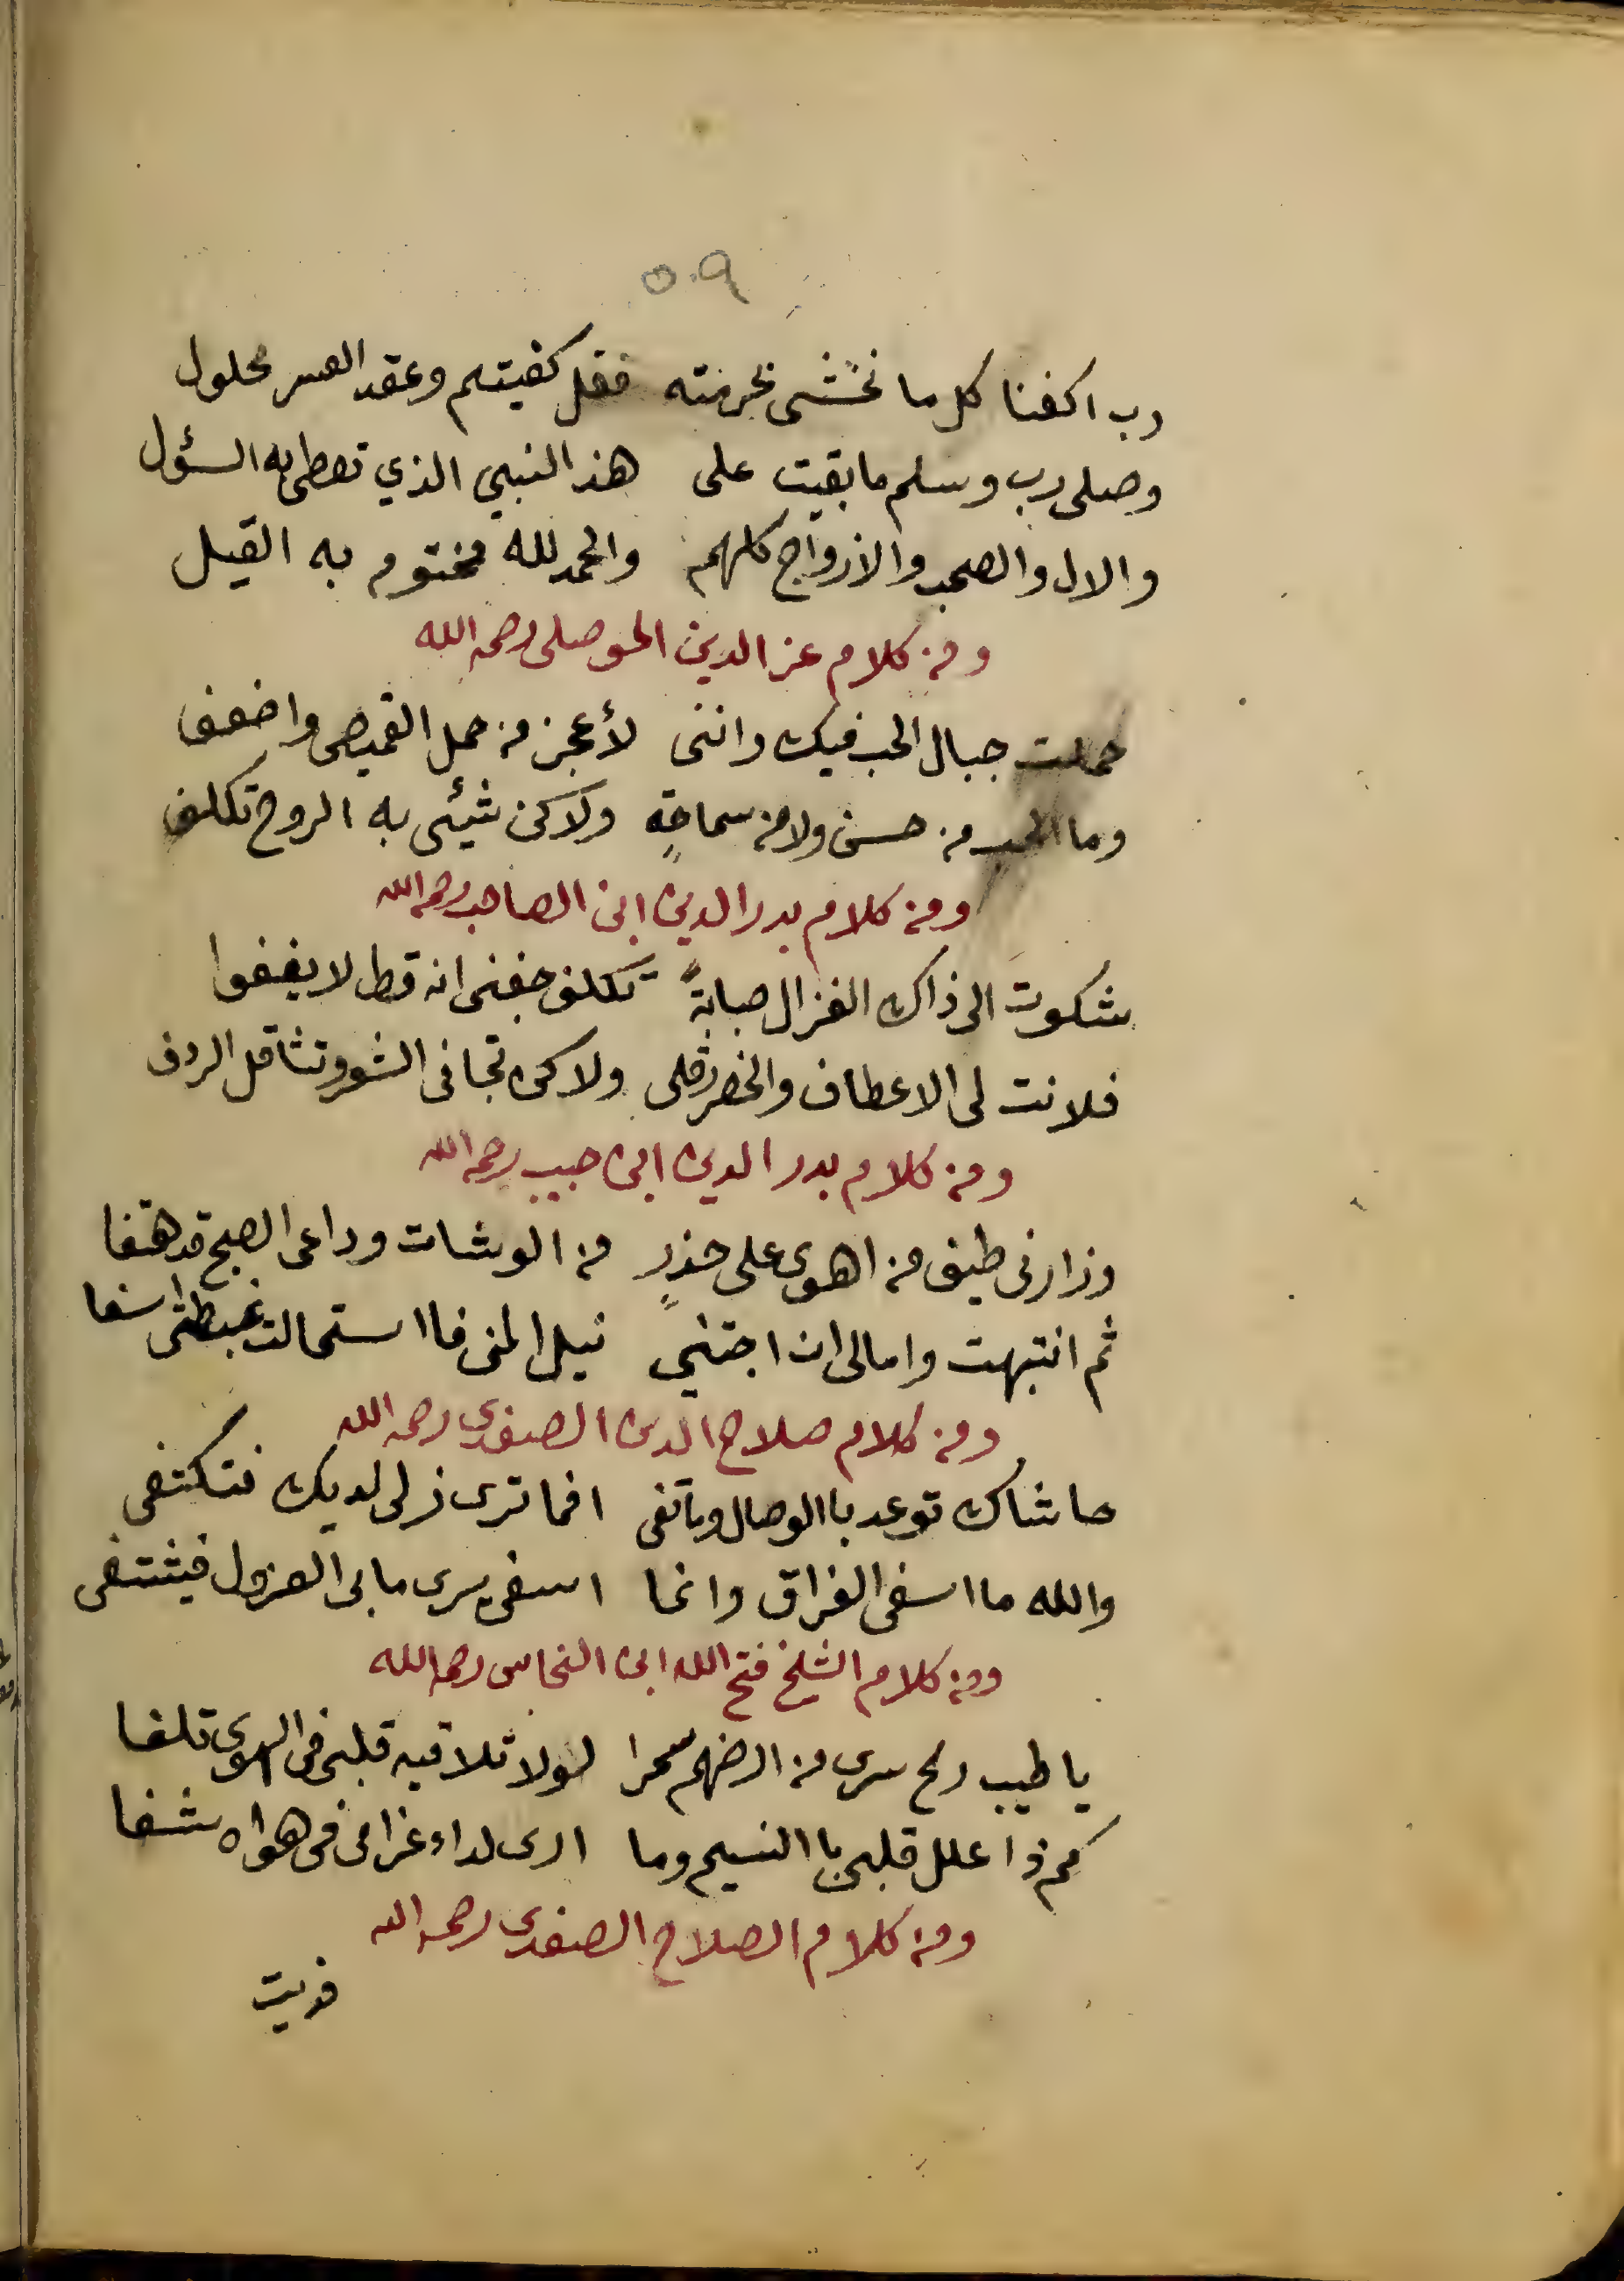 ٥٠٩
رب اكفنا كل ما نخشى بحرمته فقل كفيتم وعقد العسر محلول
وصلى رب وسلم ما بقيت على هذا النبي الذي تعطى به السئول
والال والصحب والازواج كلهم والحمد لله مختوم به القيل
ومن كلام عز الدين الموصلى رحمه الله
حملت جبال الحب فيك وانني لأعجز من حمل القميص واضعف
وما الحب من حسن ولا من سماحةٍ ولاكن شيئى به الروح تكلف
ومن كلام بدر الدين ابن الصاحب رحمه الله
شكوت الى ذاك الغزال صبابةً تكلف جفنى انه قط لا يغفوا
فلانت لى الاعطاف والخصر رق لى ولاكن تجافى الشعر وتثاقل الردف
ومن كلام بدر الدين ابن حبيب رحمه الله
وزارنى طيف من اهوى على حذرٍ من الوشات وداعى الصبح قد هتفا
ثم انتبهت وامالى ان اجتني نيل المنى فا استحالت غبطتى اسفا
ومن كلام صلاح الدين الصفدى رحمه الله
حاشاك توعد باالوصال وتاتفى افما ترى ذلى لديك فتكتفى
والله ما اسفى الفراق وانما اسفى يرى ما بى العزول فيشتفى
ومن كلام الشيخ فتح الله ابن النحاس رحمه الله
يا طيب ريح سرى من ارضهم سحرا لولا تلاقيه قلبى فى الهوى تلفا
كم ذا علل قلبى باالنسيم وما ارى لداء غرامى فى هواه شفا
ومن كلام الصلاح الصفدى رحمه الله
فديت